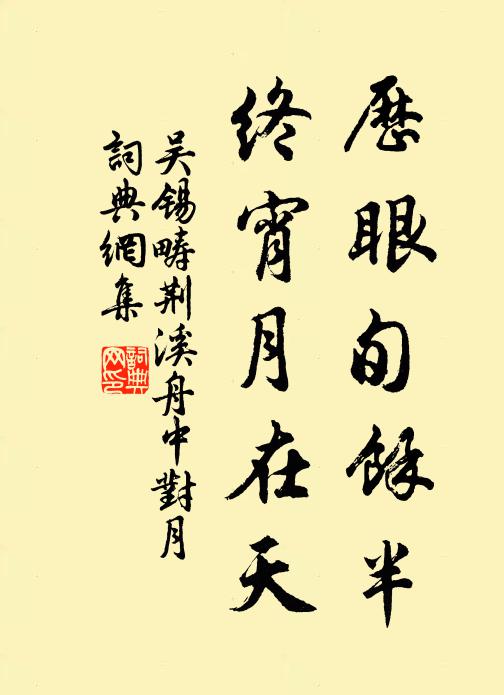 歷眼旬餘半
終宵月在天
吳錫疇荆溪舟中對月
詞典網集
詞典網印